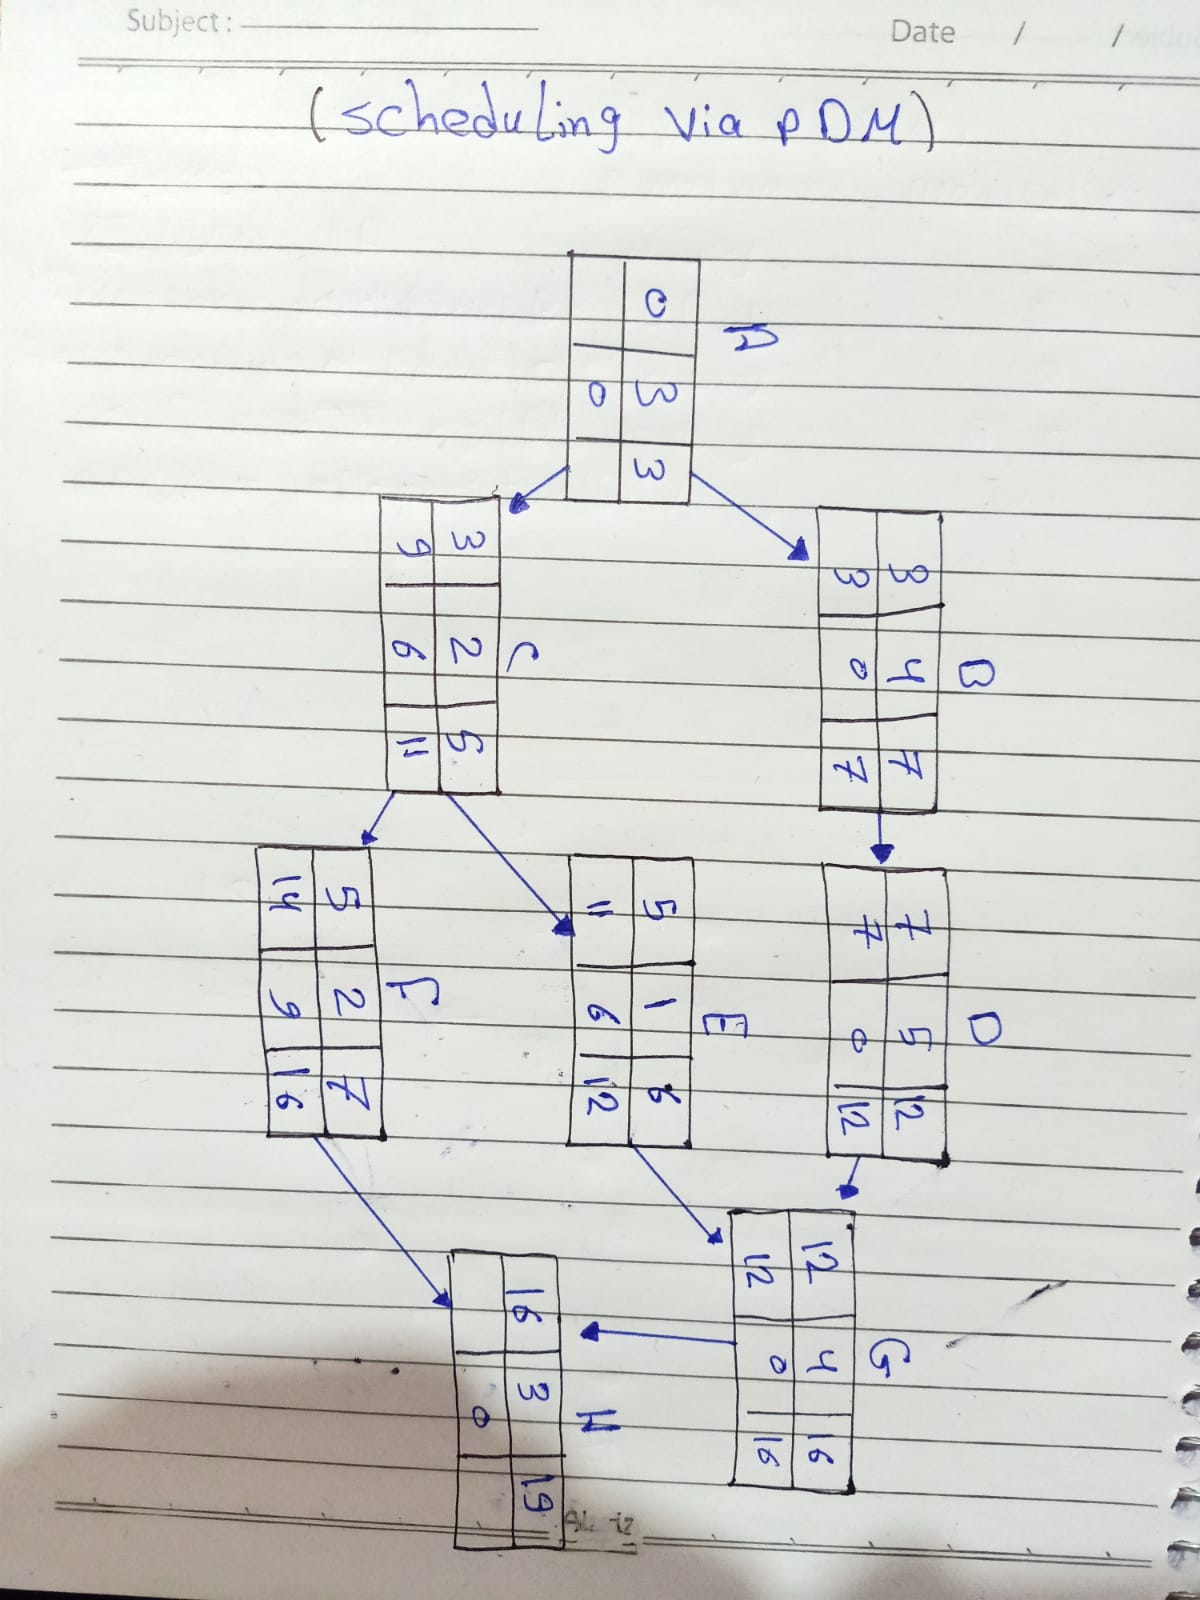 Subject :
Date / /
(scheduling via PDM)
A
0 3 3
0
B
3 4 7
3 0 7
C
3 2 5
9 6 11
D
7 5 12
7 0 12
E
5 1 6
11 6 12
F
5 2 7
14 9 16
G
12 4 16
12 0 16
H
16 3 19
0